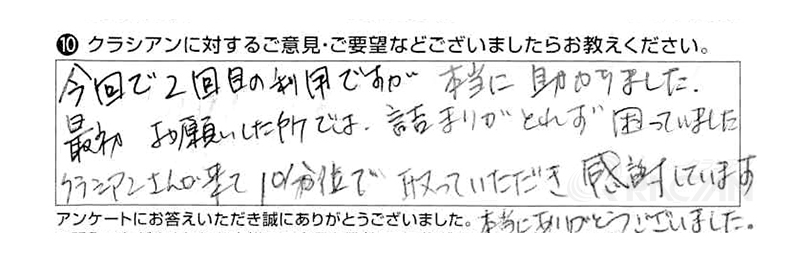 ⑩ クラシアンに対するご意見・ご要望などございましたらお教えください。
今回で2回目の利用ですが 本当に助かりました.
最初 お願いした所では、詰まりがとれず 困っていました
クラシアンさんが来て 10分位で 取っていただき 感謝しています
アンケートにお答えいただき誠にありがとうございました。本当にありがとうございました。